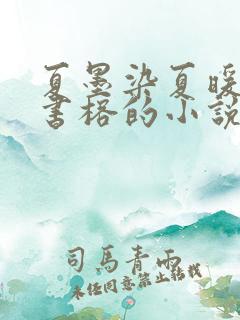 夏墨染夏暖
書格的小說
司馬青雨
未經同意禁止轉載